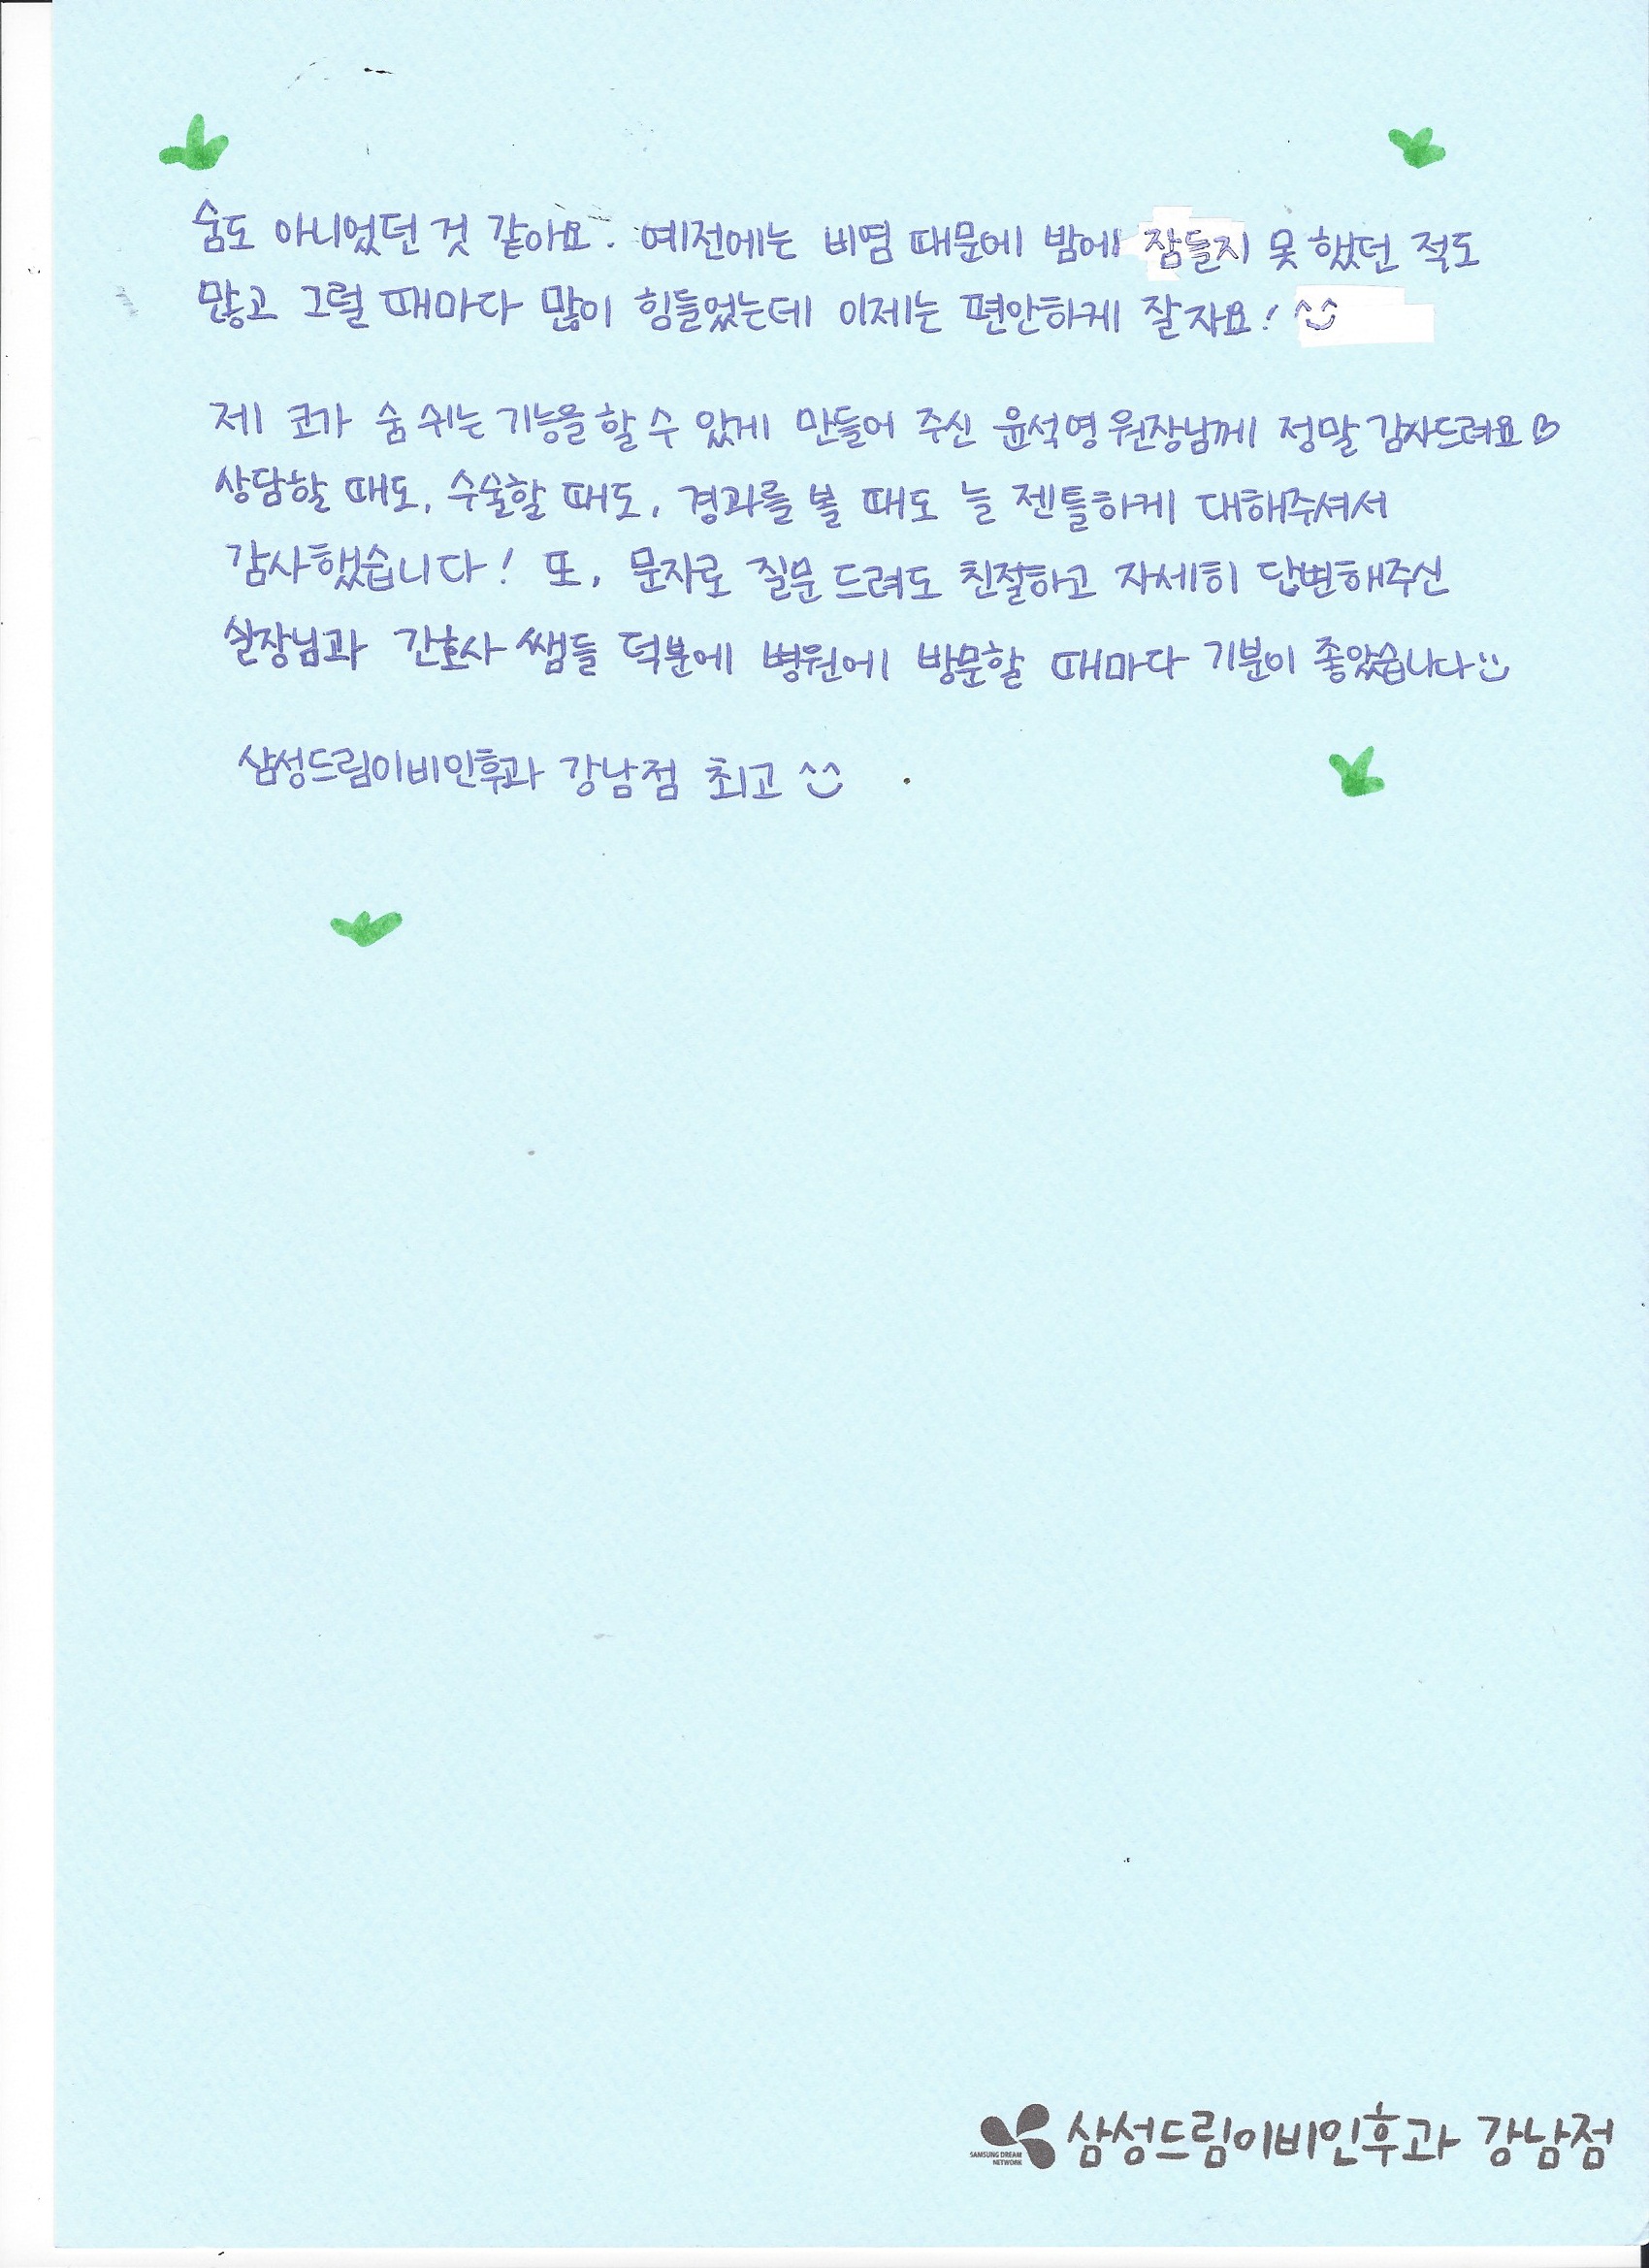 숨도 아니었던 것 같아요. 예전에는 비염 때문에 밤에 잠들지 못했던 적도
많고 그럴 때마다 많이 힘들었는데 이제는 편안하게 잘 자요! ^^
제 코가 숨 쉬는 기능을 할 수 있게 만들어 주신 윤석영 원장님께 정말 감사드려요♡
상담할 때도, 수술할 때도, 경과를 볼 때도 늘 젠틀하게 대해주셔서
감사했습니다! 또, 문자로 질문 드려도 친절하고 자세히 답변해주신
실장님과 간호사 쌤들 덕분에 병원에 방문할 때마다 기분이 좋았습니다:)
삼성드림이비인후과 강남점 최고 ^^
SAMSUNG DREAM
NETWORK
삼성드림이비인후과 강남점